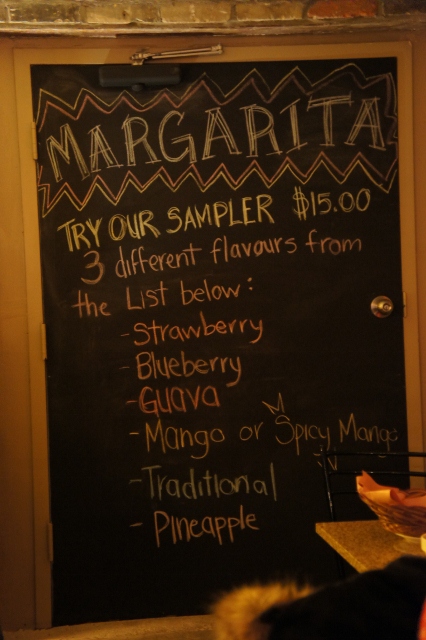 MARGARITA
TRY OUR SAMPLER $15.00
3 different flavours from
the List below:
- Strawberry
- Blueberry
- Guava
- Mango or Spicy Mango
- Traditional
- Pineapple